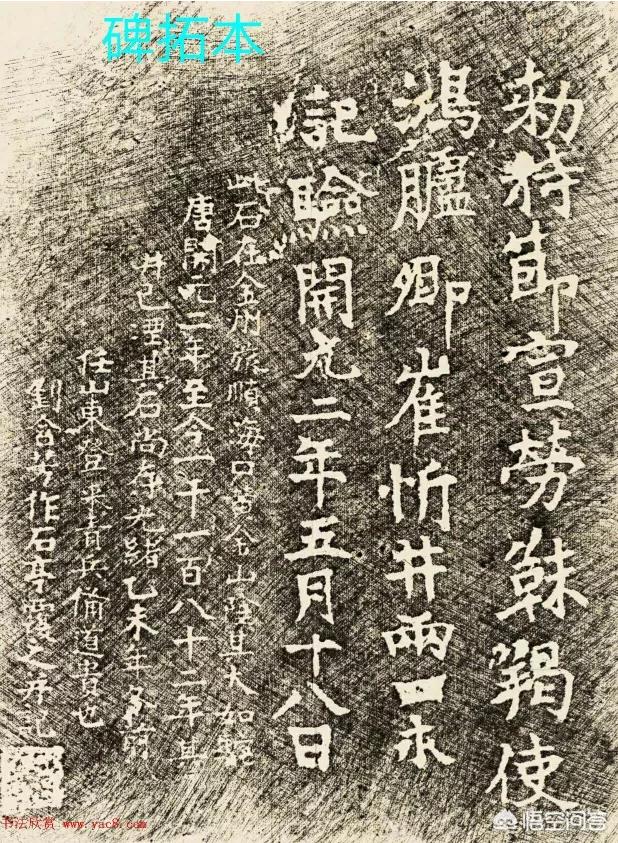 碑拓本
勅持節宣勞靺羯使
鴻臚卿崔忻井兩口永
記驗開元二年五月十八日
此石在金州旅順海口黃金山陰其大如駝
唐開元二年至今一千一百八十二年其
井已湮其石尚存光緒乙未年冬前
任山東登萊青兵備道貴池
劉含芳作石亭覆之并記
书法欣赏 www.yac8.com
悟空问答